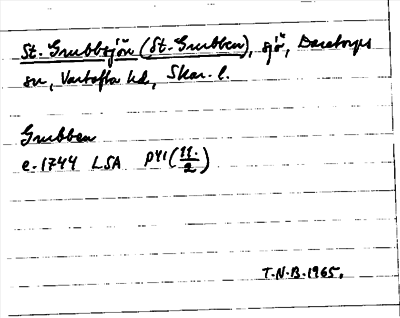 St. Grubbsjön (St. Grubben), sjö, Daretorps
sn, Vartofta hd, Skar. l.
Grubben
e. 1744 LSA P41 (11:/2)
T.N.B. 1965.